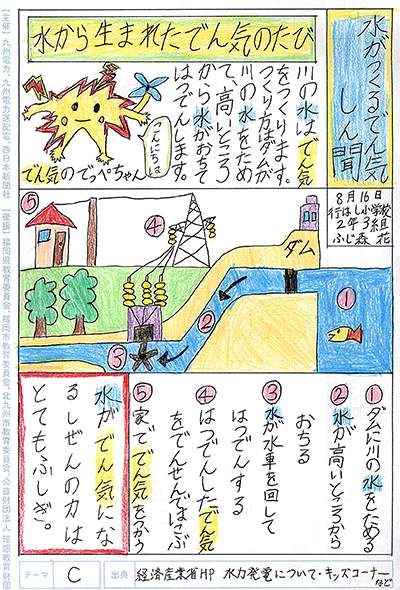 水がつくるでん気
しん聞
水から生まれたでん気のたび
川の水はでん気
をつくります。
つくり方はダムが
川の水をため
て、高いところ
から水がおちて
はつでんします。
こんにちは
でん気のでっぺちゃん
8月16日
行はし小学校
2年3組
ふじ森 花
ダム
①
②
③
④
⑤
①ダムに川の水をためる
②水が高いところから
おちる
③水が水車を回して
はつでんする
④はつでんしたでん気
をでんせんではこぶ
⑤家ででん気をつかう
水がでん気にな
るしぜんの力は
とてもふしぎ。
テーマ C
出典 経済産業省HP 水力発電について・キッズコーナーなど
【主催】九州電力、九州電力送配電、西日本新聞社 【後援】福岡県教育委員会、福岡市教育委員会、北九州市教育委員会、公益財団法人 理想教育財団